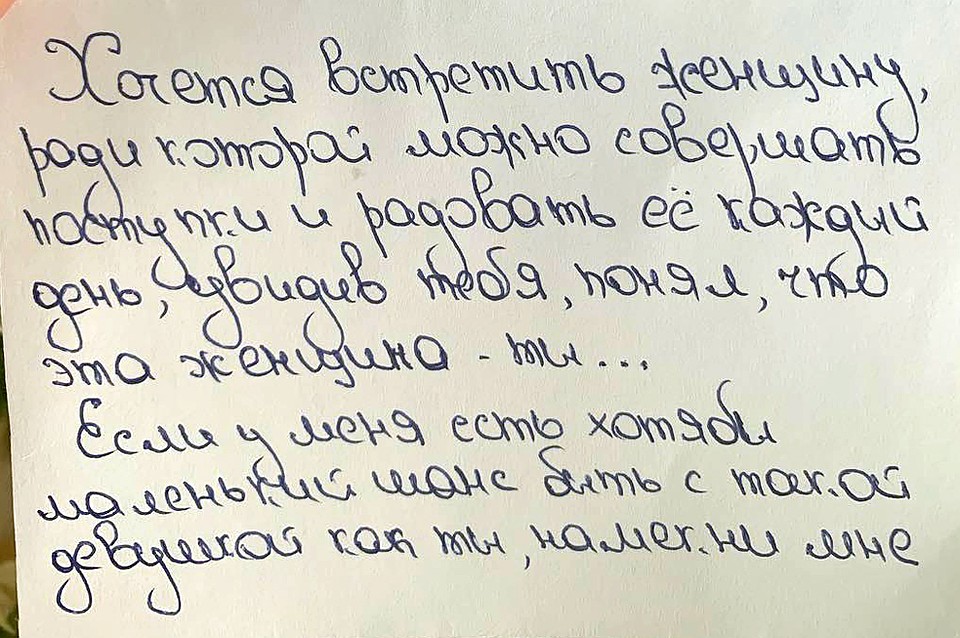 Хочется встретить женщину,
ради которой можно совершать
поступки и радовать её каждый
день, увидив тебя, понял, что
эта женщина - ты...
Если у меня есть хотябы
маленький шанс быть с такой
девушкой как ты, намекни мне